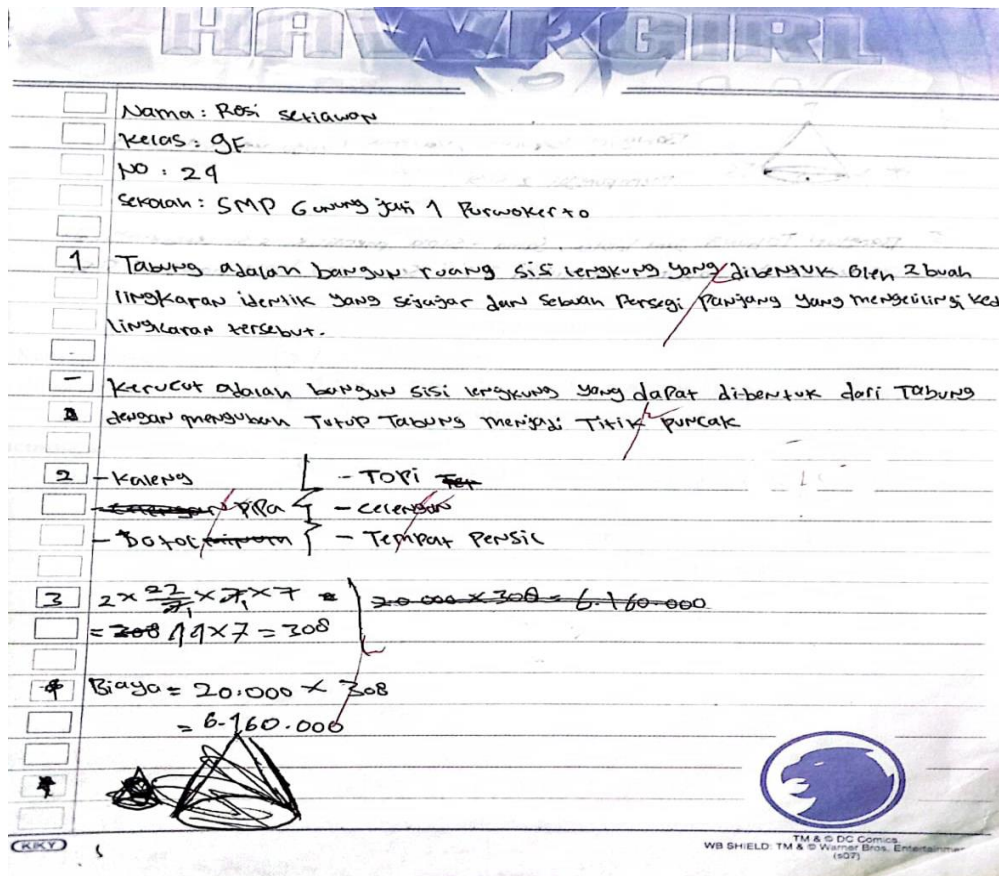 HAWKGIRL
Nama : Rosi setiawan
Kelas : 9F
NO : 24
Sekolah : SMP Gunung jati 1 Purwokerto
1 Tabung adalah bangun ruang sisi lengkung yang dibentuk oleh 2 buah
lingkaran identik yang sejajar dan sebuah Persegi Panjang yang mengelilingi ked
lingkaran tersebut.
- Kerucut adalah bangun sisi lengkung yang dapat dibentuk dari Tabung
dengan mengubah Tutup Tabung menjadi Titik puncak
2 - Kaleng - TOPi
PiPa - celengan
- Botol - Tempat Pensil
3 2 × 22/7 × 7 × 7 = 20.000 × 308 = 6.160.000
= 308 44 × 7 = 308
Biaya = 20.000 × 308
= 6.160.000
KKY
TM & © DC Comics.
WB SHIELD: TM & © Warner Bros. Entertainment
(s07)